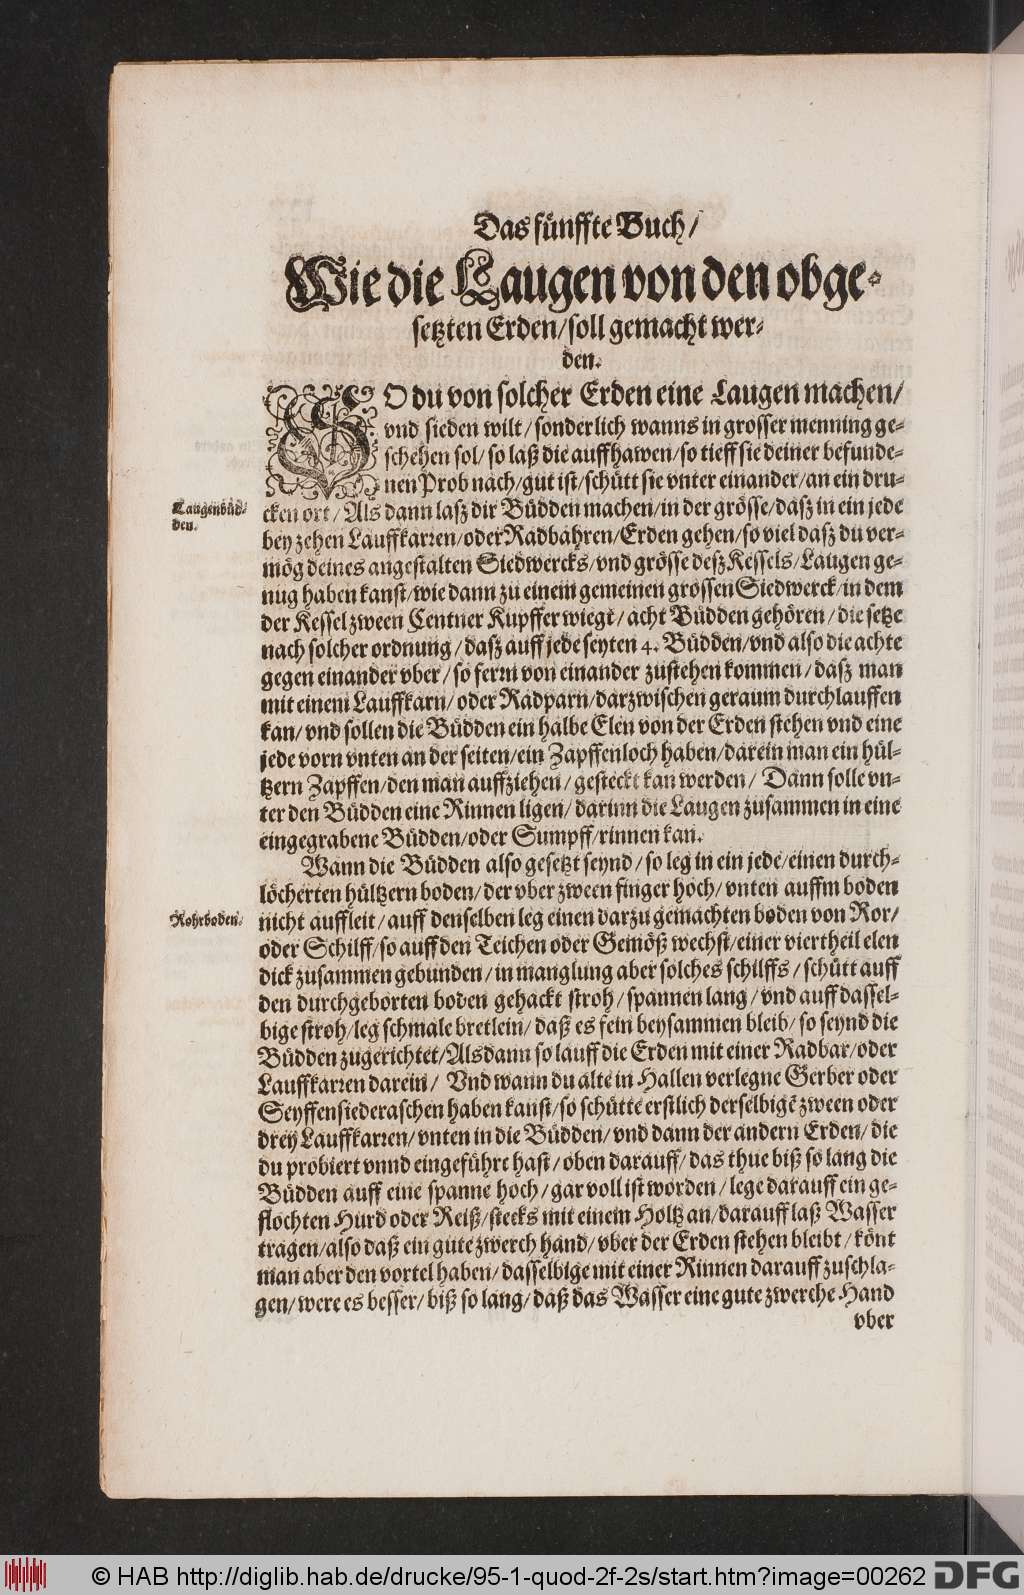 Das fünffte Buch/
Wie die Laugen von den obge-
setzten Erden/soll gemacht wer-
den.
SO du von solcher Erden eine Laugen machen/
vnd sieden wilt/sonderlich wanns in grosser menning ge-
schehen sol/so laß die auffhawen/so tieff sie deiner befunde-
nen Prob nach/gut ist/schütt sie vnter einander/an ein dru-
cken ort/Als dann lasz dir Büdden machen/in der grösse/dasz in ein jede
bey zehen Lauffkarren/oder Radbahren/Erden gehen/so viel dasz du ver-
mög deines angestalten Siedwercks/vnd grösse desz Kessels/Laugen ge-
nug haben kanst/wie dann zu einem gemeinen grossen Siedwerck/in dem
der Kessel zween Centner Kupffer wiegt/acht Büdden gehören/die setze
nach solcher ordnung/dasz auff jede seyten 4. Büdden/vnd also die achte
gegen einander vber/so ferrn von einander zustehen kommen/dasz man
mit einem Lauffkarn/oder Radparn/darzwischen geraum durchlauffen
kan/vnd sollen die Büdden ein halbe Elen von der Erden stehen vnd eine
jede vorn vnten an der seiten/ein Zapffenloch haben/darein man ein hül-
tzern Zapffen/den man auffziehen/gesteckt kan werden/Dann solle vn-
ter den Büdden eine Rinnen ligen/darinn die Laugen zusammen in eine
eingegrabene Büdden/oder Sumpff/rinnen kan.
Wann die Büdden also gesetzt seynd/so leg in ein jede/einen durch-
löcherten hültzern boden/der vber zween finger hoch/vnten auffm boden
nicht auffleit/auff denselben leg einen darzu gemachten boden von Ror/
oder Schilff/so auff den Teichen oder Gemöß wechst/einer viertheil elen
dick zusammen gebunden/in manglung aber solches schilffs/schütt auff
den durchgeborten boden gehackt stroh/spannen lang/vnd auff dassel-
bige stroh/leg schmale bretlein/daß es fein beysammen bleib/so seynd die
Büdden zugerichtet/Alsdann so lauff die Erden mit einer Radbar/oder
Lauffkarren darein/Vnd wann du alte in Hallen verlegne Gerber oder
Seyffensiederaschen haben kanst/so schütte erstlich derselbigē zween oder
drey Lauffkarren/vnten in die Büdden/vnd dann der andern Erden/die
du probiert vnnd eingeführt hast/oben darauff/das thue biß so lang die
Büdden auff eine spanne hoch/gar voll ist worden/lege darauff ein ge-
flochten Hurd oder Reiß/stecks mit einem Holtz an/darauff laß Wasser
tragen/also daß ein gute zwerch hand/vber der Erden stehen bleibt/könt
man aber den vortel haben/dasselbige mit einer Rinnen darauff zuschla-
gen/were es besser/biß so lang/daß das Wasser eine gute zwerche Hand
vber
Laugenbüd-
den.
Rohrboden.
© HAB http://diglib.hab.de/drucke/95-1-quod-2f-2s/start.htm?image=00262
DFG